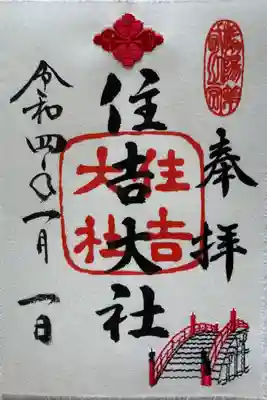 奉拝
住吉大社
住吉大社
令和四年一月一日